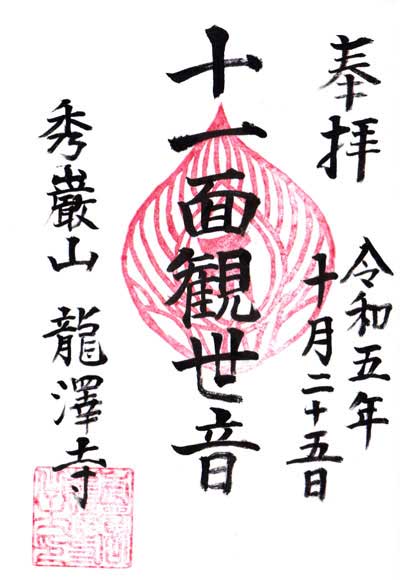 奉拝
令和五年
十月二十五日
十一面観世音
秀巖山 龍澤寺